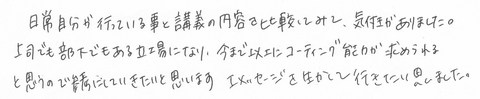 日常自分が行っている事と講義の内容を比較してみて、気付きがありました。
上司でも部下でもある立場になり、今まで以上にコーチング能力が求められる
と思うので参考にしていきたいと思います Iメッセージを生かして行きたい思いました。